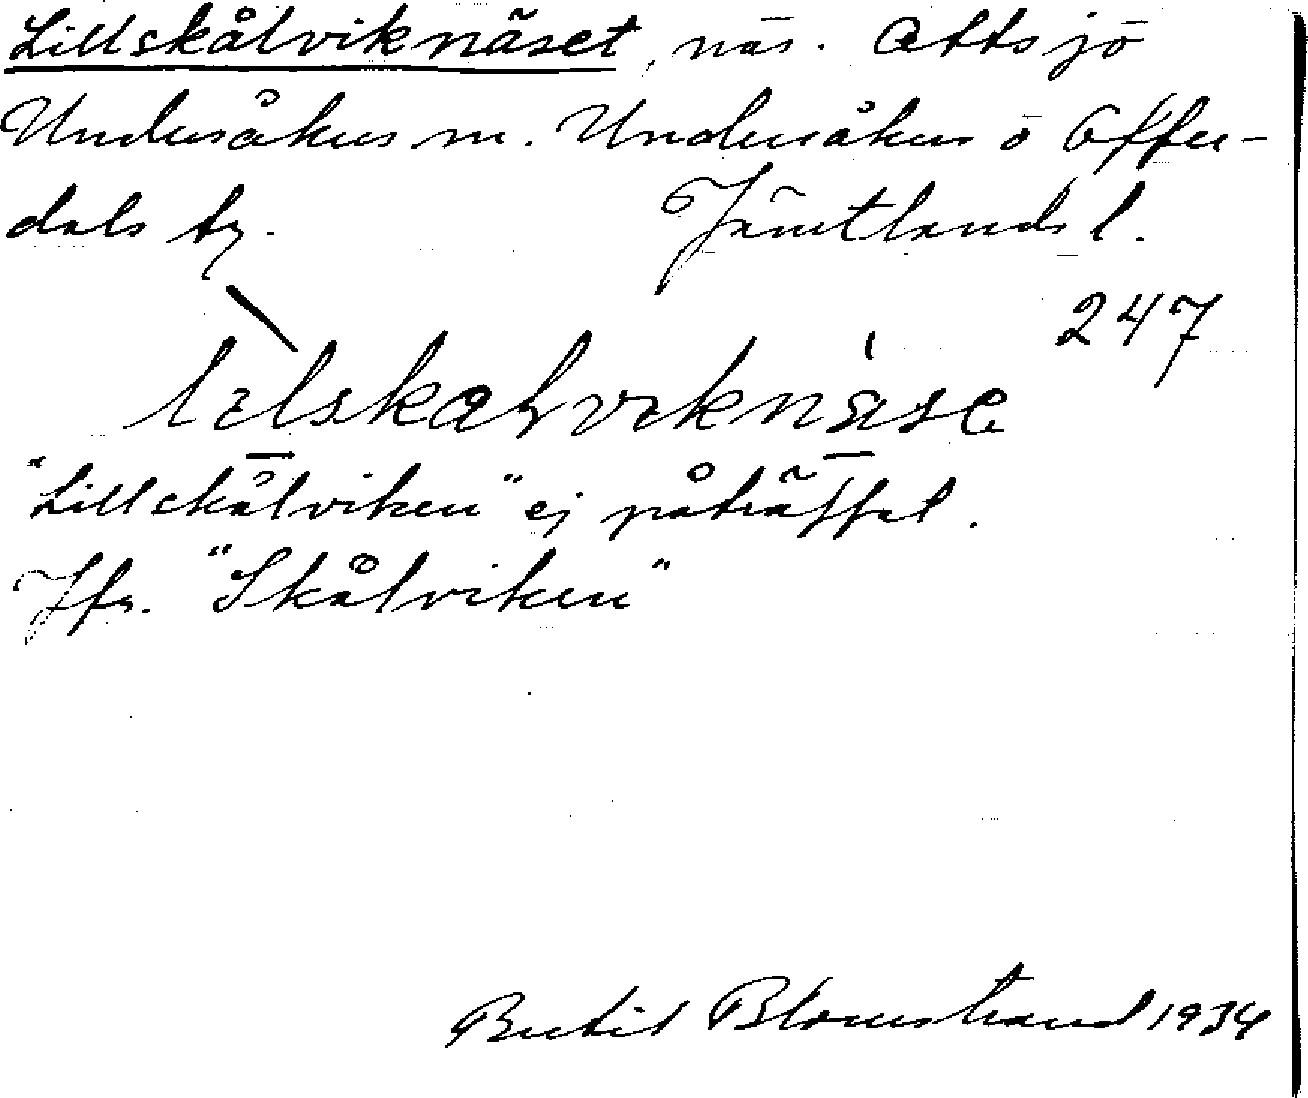 Lillskålviknäset, näs. Ottsjö
Undersåkers sn. Undersåkers o Offer-
dals tg. Jämtlands l.
247
lɪlskaɽvɪknäse
"Lillskålviken" ej påträffat.
Jfr. "Skålviken"
Bertil Blomstrand 1934